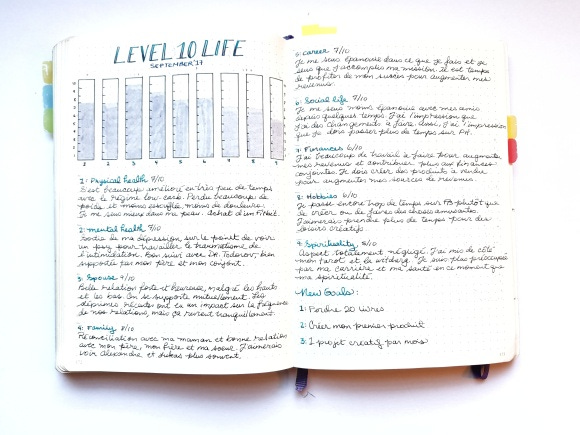 LEVEL 10 LIFE
SEPTEMBER '17
1 2 3 4 5 6 7 8 9
1: Physical health 7/10
S'est beaucoup amélioré en très peu de temps
avec le régime low-carb. Perdu beaucoup de
poids et moins essoufflée, moins de douleurs.
Je me sens mieux dans ma peau. Achat d'un Fitbit.
2: mental health 7/10
Sortie de ma dépression sur le point de voir
un psy pour travailler le traumatisme de
l'intimidation. Bon suivi avec DR. Bien
supportée par mon père et mon conjoint.
3: Spouse 9/10
Belle relation forte et heureuse, malgré les hauts
et les bas. On se supporte mutuellement. Les
déprimes récentes ont eu un impact sur la
de nos relations, mais ça revient tranquillement.
4: Family 8/10
Réconciliation avec ma maman et bonne relation
avec mon père, mon frère et ma soeur. J'aimerais
voir Alexandre et plus souvent.
5: career 7/10
Je me sens épanouie dans ce que je fais et je
sens que j'accomplis ma mission. Il est temps
de profiter de mon succès pour augmenter mes
revenus.
6: Social life 7/10
Je me sens moins épanouie avec mes amis
depuis quelques temps. J'ai l'impression que
j'ai des changements à faire. Aussi, j'ai l'impression
que je dois passer plus de temps sur
7: Finances 6/10
J'ai beaucoup de travail à faire pour augmenter
mes revenus et contribuer plus aux finances
conjointes. Je dois créer des produits à vendre
pour augmenter mes sources de revenus.
8: Hobbies 6/10
Je passe encore trop de temps sur FB plutôt que
de créer ou de faire des choses amusantes.
J'aimerais prendre plus de temps pour des
loisirs créatifs
9: Spirituality /10
Aspect totalement négligé. J'ai mis de côté
mon tarot et la Je suis plus préoccupée
par ma carrière et ma santé en ce moment que
ma spiritualité.
New Goals:
1: Perdre 20 livres
2: Créer mon premier produit
3: 1 projet créatif par mois